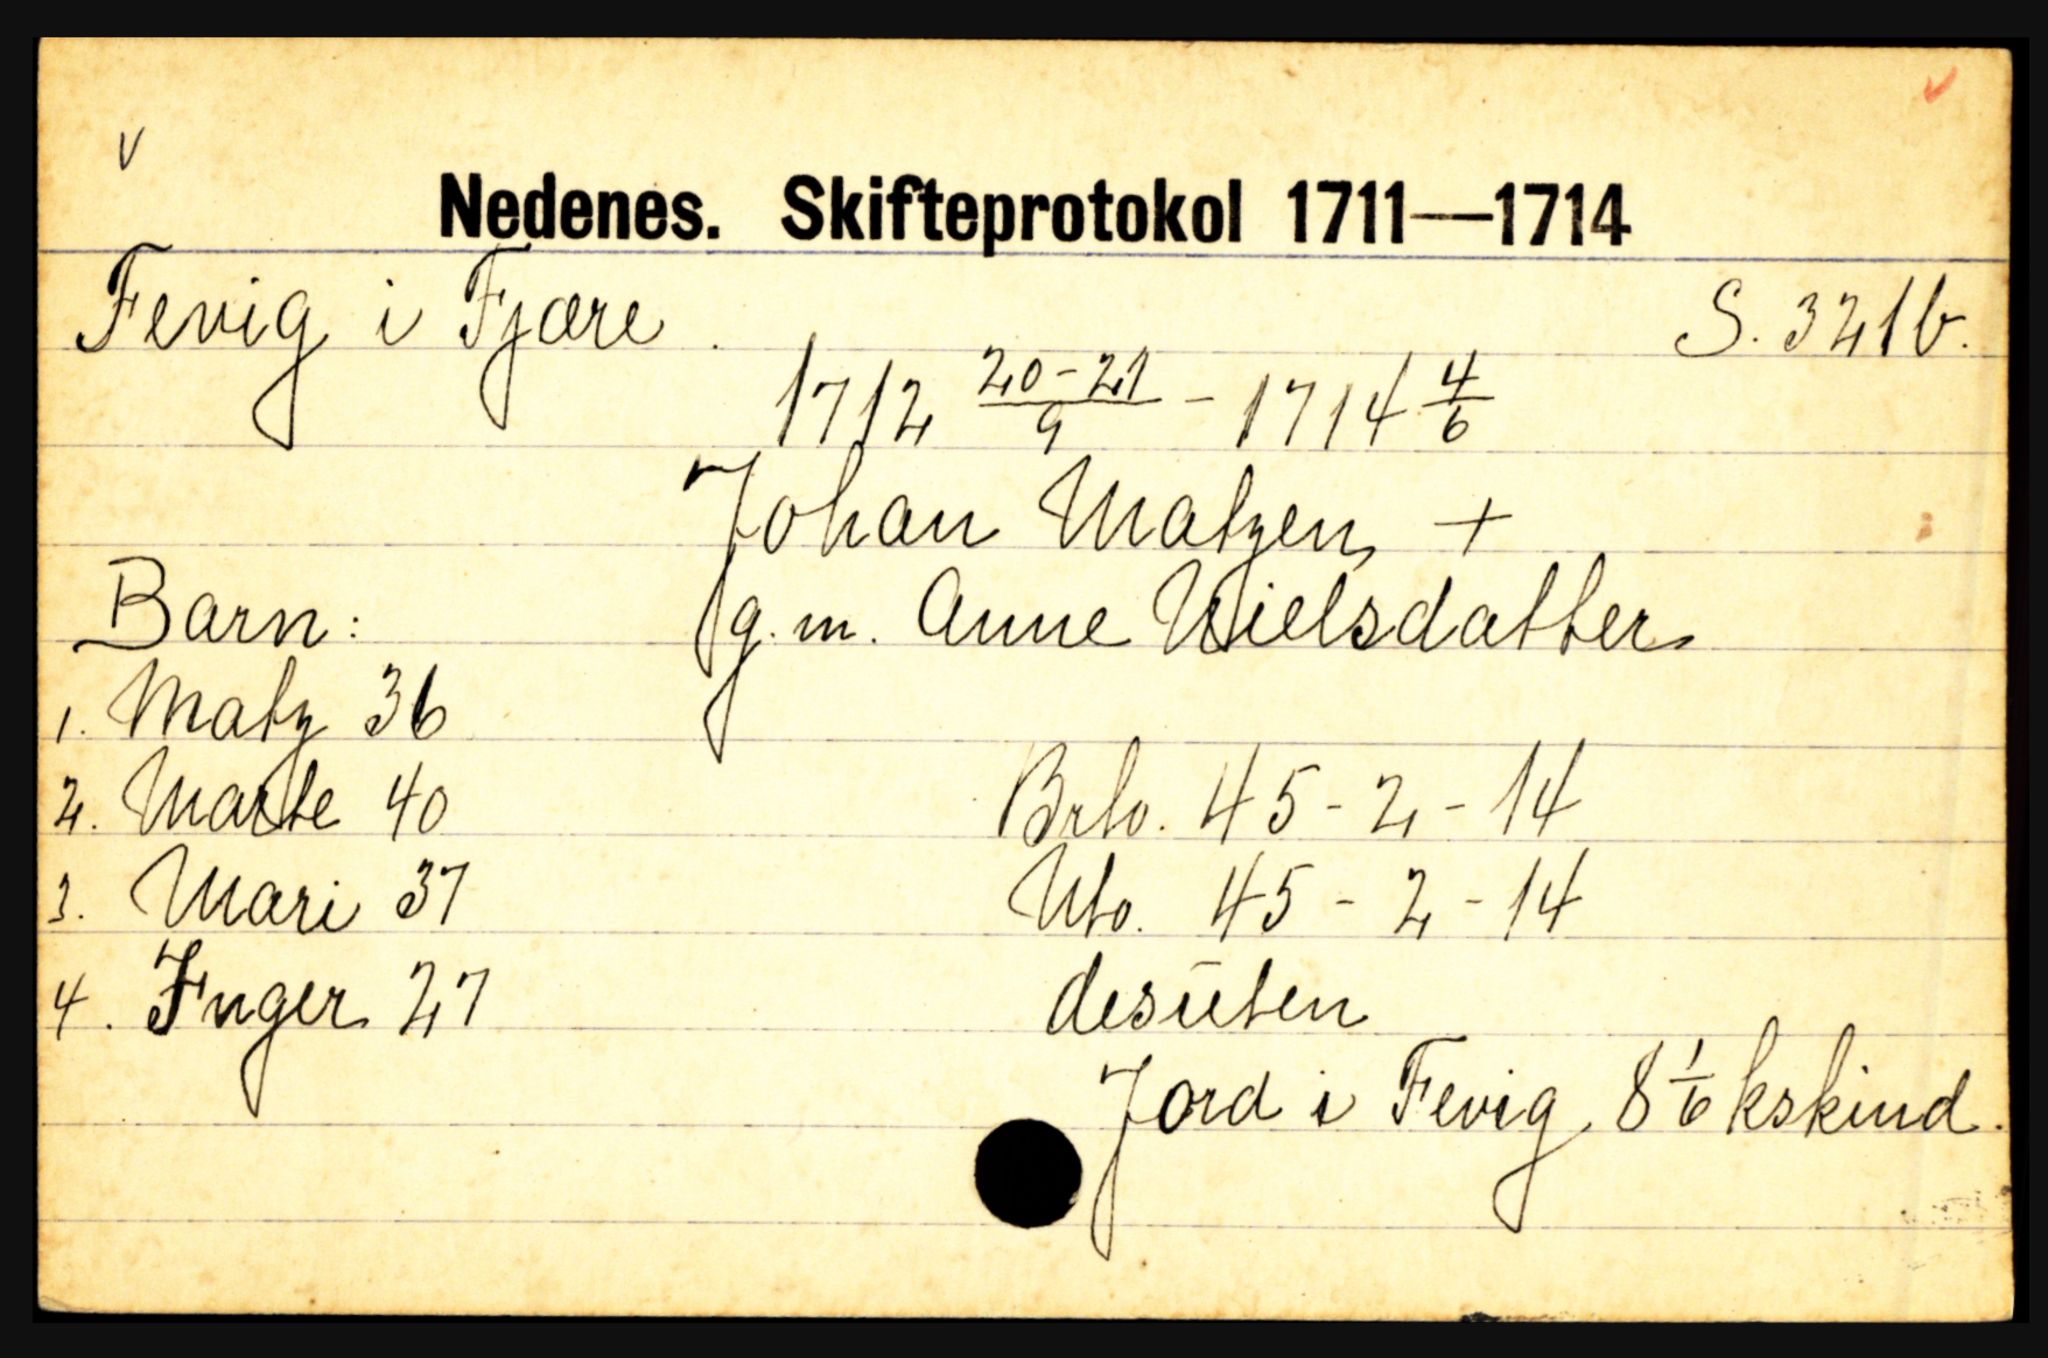 Nedenes. Skifteprotokol 1711—1714
Fevig i Fjære. S. 321b.
1712 20-21/9 - 1714 4/6
Johan Matzen +
Barn: g.m. Anne Nielsdatter
1. Matz 36
2. Marte 40 Brto. 45 - 2 - 14
3. Mari 37 Nto. 45 - 2 - 14
4. Inger 27 desuten
Jord i Fevig 8 1/6 kskind.